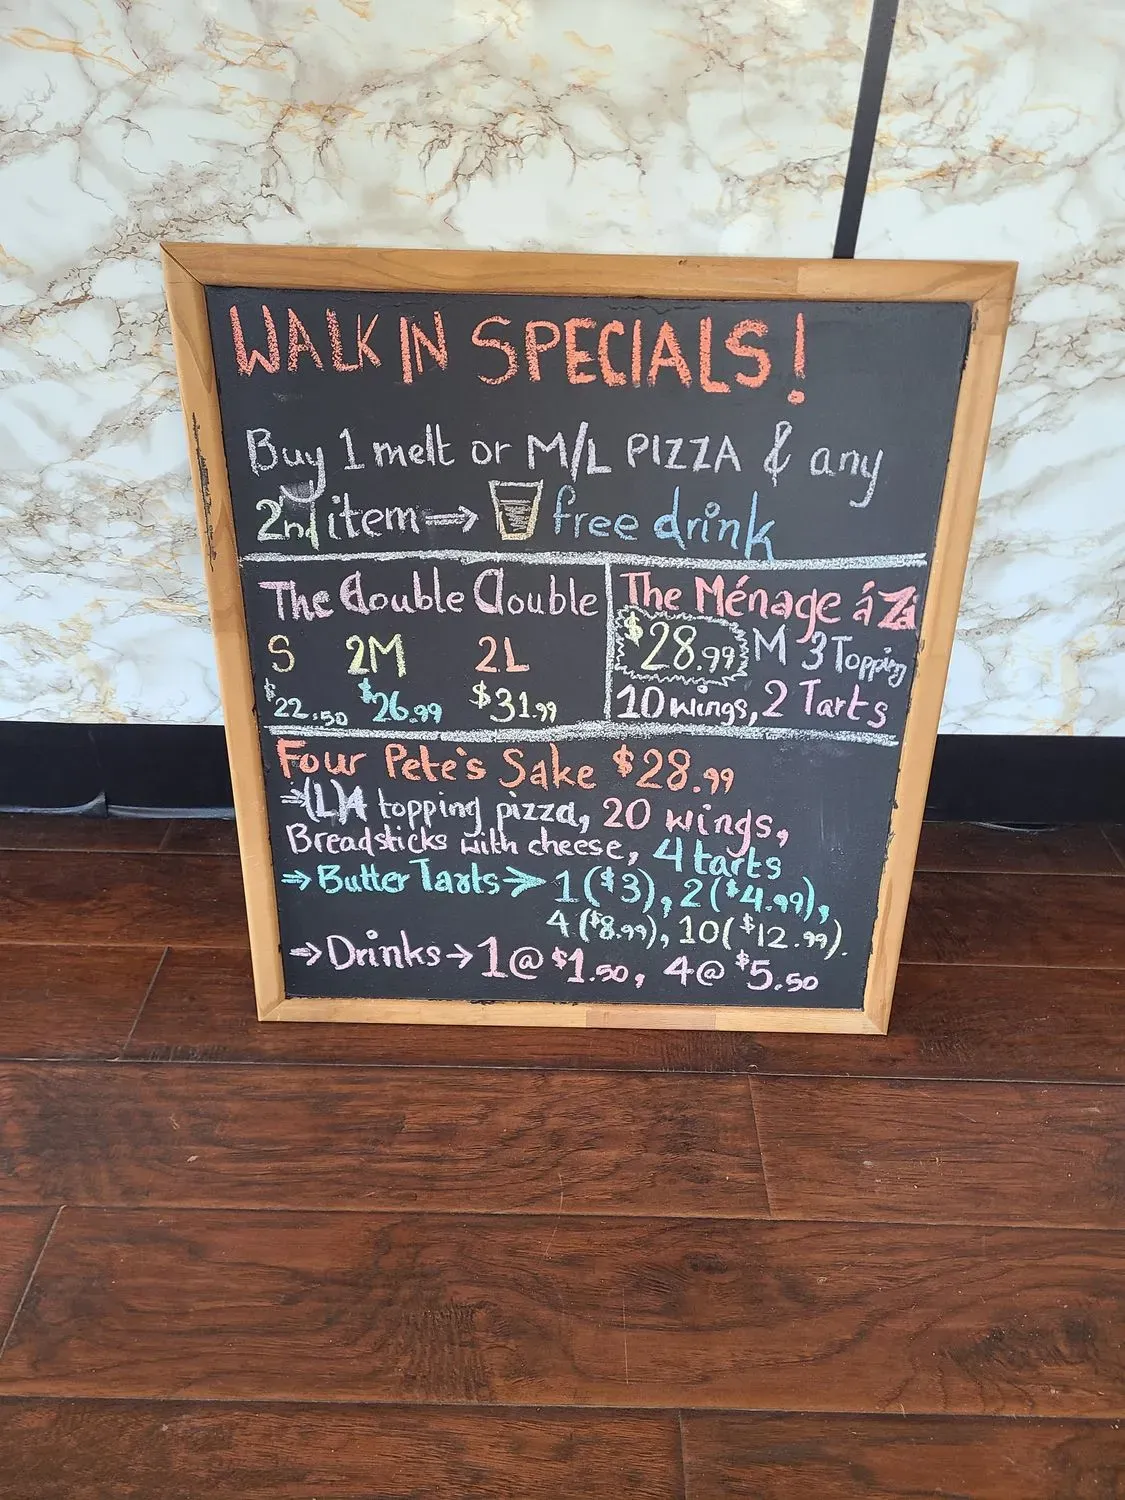 WALK IN SPECIALS!
Buy 1 melt or M/L PIZZA & any
2nd item ⇒ free drink
The Double Double
S 2M 2L
$22.50 $26.99 $31.99
The Ménage á Za
$28.99 M 3 Topping
10 wings, 2 Tarts
Four Pete's Sake $28.99
⇒(L)4 topping pizza, 20 wings,
Breadsticks with cheese, 4 tarts
⇒ Butter Tarts > 1 ($3), 2 ($4.99),
4 ($8.99), 10 ($12.99).
⇒ Drinks → 1 @ $1.50, 4 @ $5.50